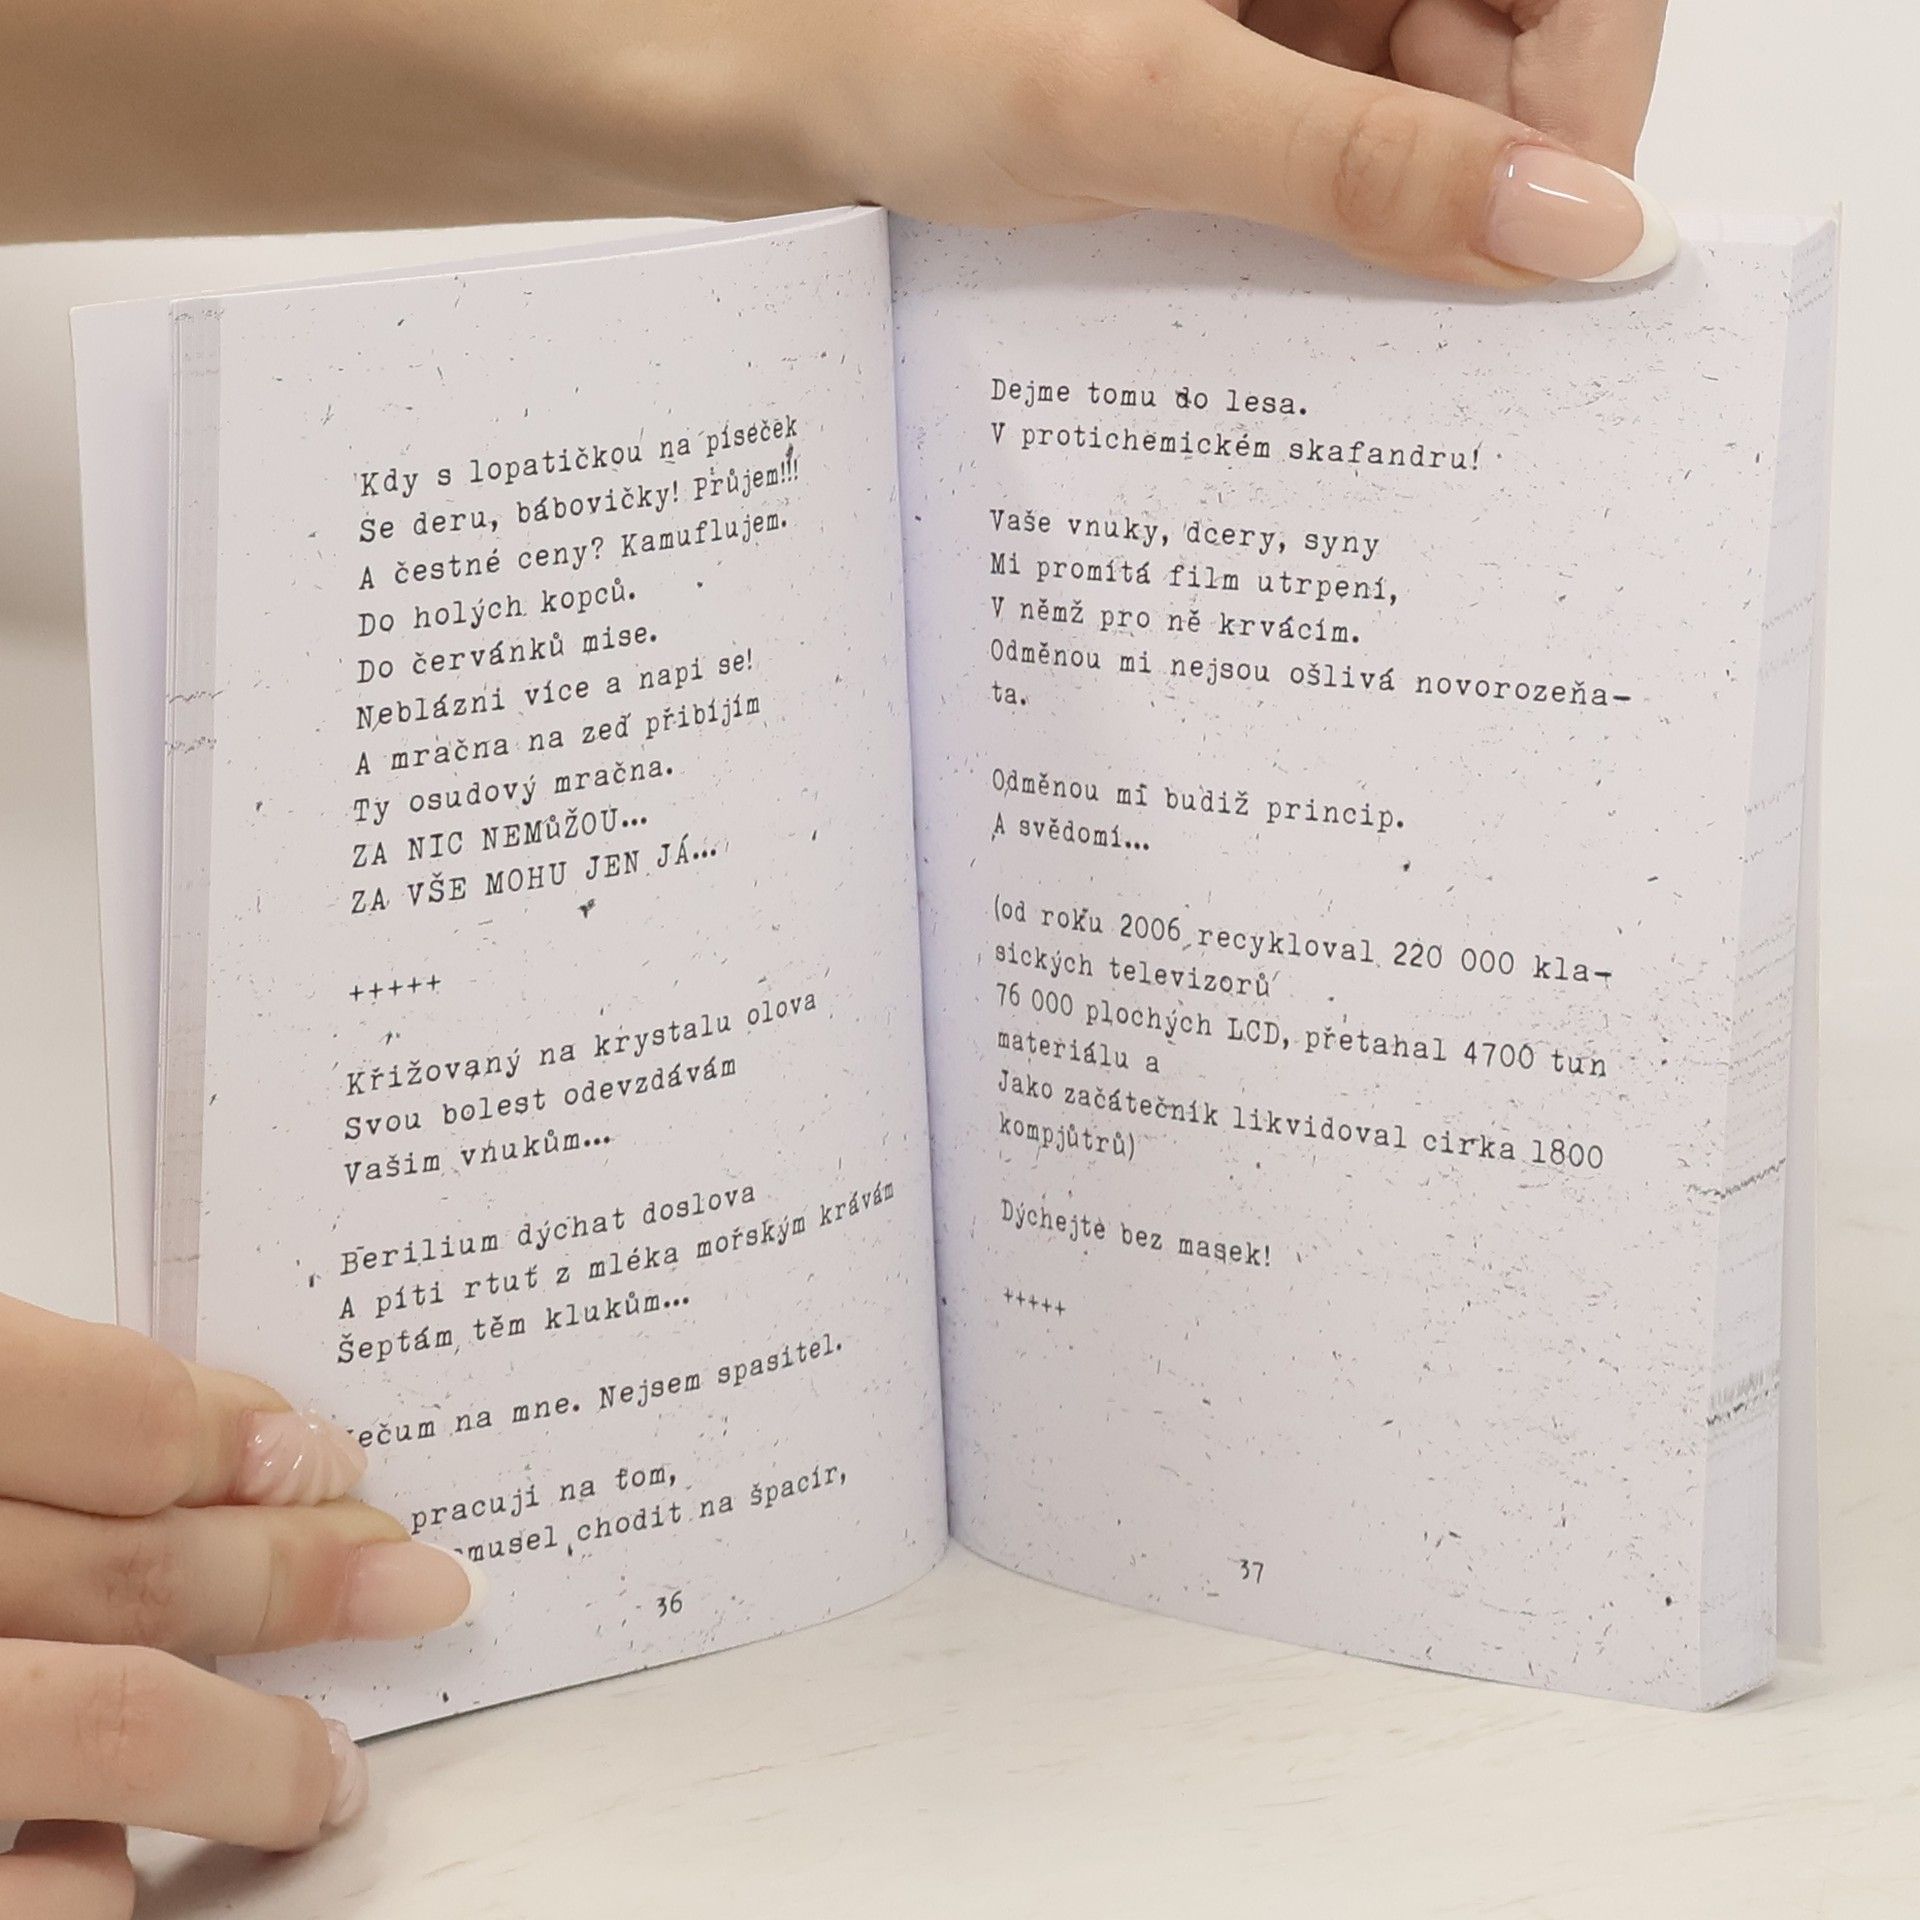 Kdy s lopatičkou na píseček
Se deru, bábovičky! Průjem!!!
A čestné ceny? Kamuflujem.
Do holých kopců.
Do červánků mise.
Neblázni více a napi se!
A mračna na zeď přibíjím
Ty osudový mračna.
ZA NIC NEMůŽOU...
ZA VŠE MOHU JEN JÁ...
+++++
Křižovaný na krystalu olova
Svou bolest odevzdávám
Vašim vnukům...
Berilium dýchat doslova
A píti rtuť z mléka mořským krávám
Šeptám těm klukům...
na mne. Nejsem spasitel.
pracuji na tom,
chodit na špacír,
36
Dejme tomu do lesa.
V protichemickém skafandru!
Vaše vnuky, dcery, syny
Mi promítá film utrpení,
V němž pro ně krvácím.
Odměnou mi nejsou ošlivá novorozeňa-
ta.
Odměnou mi budiž princip.
A svědomí...
(od roku 2006 recykloval 220 000 kla-
sických televizorů
76 000 plochých LCD, přetahal 4700 tun
materiálu a
Jako začátečník likvidoval cirka 1800
kompjůtrů)
Dýchejte bez masek!
+++++
37